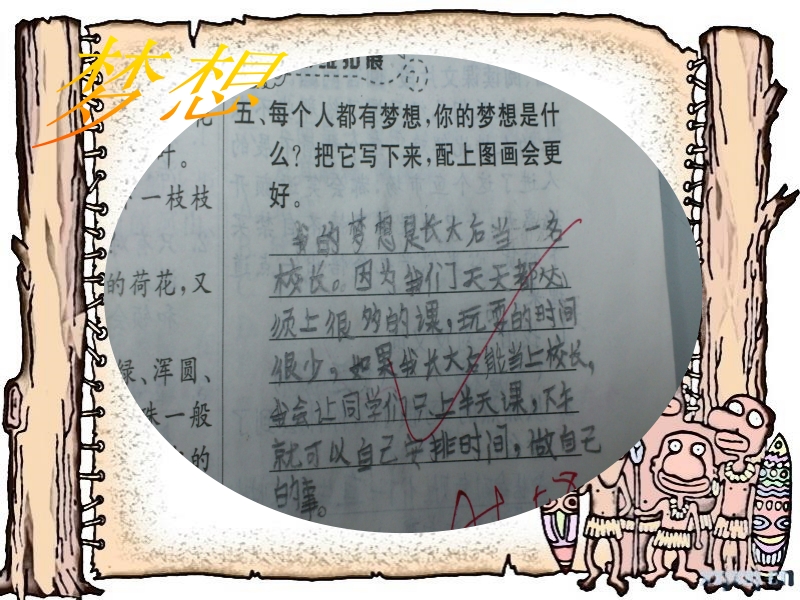 梦想
五、每个人都有梦想，你的梦想是什
么？把它写下来，配上图画会更
好。
我的梦想是长大后当一名
校长。因为我们天天都必
须上很多的课，玩耍的时间
很少，如果我长大后能当上校长，
我会让同学们只上半天课，下午
就可以自己安排时间，做自己
的事。
一枝枝
的荷花，又
绿、浑圆、
珠一般
的